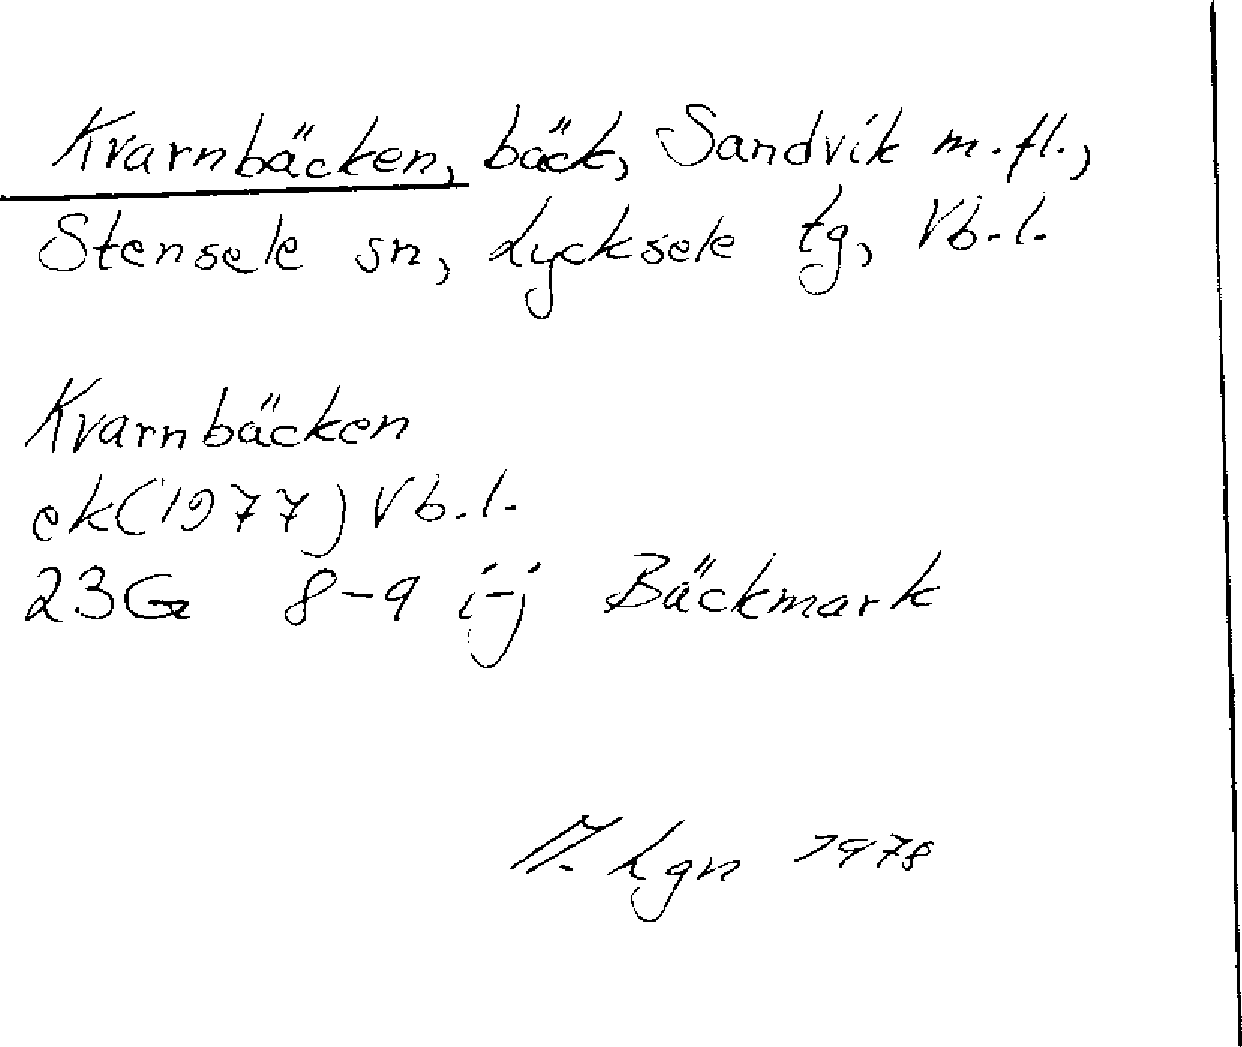 Kvarnbäcken, bäck, Sandvik m.fl.,
Stensele sn, Lycksele tg, Vb.l.
Kvarnbäcken
ek(1977) Vb.l.
23G 8-9 i-j Bäckmark
M. Lgn 1978